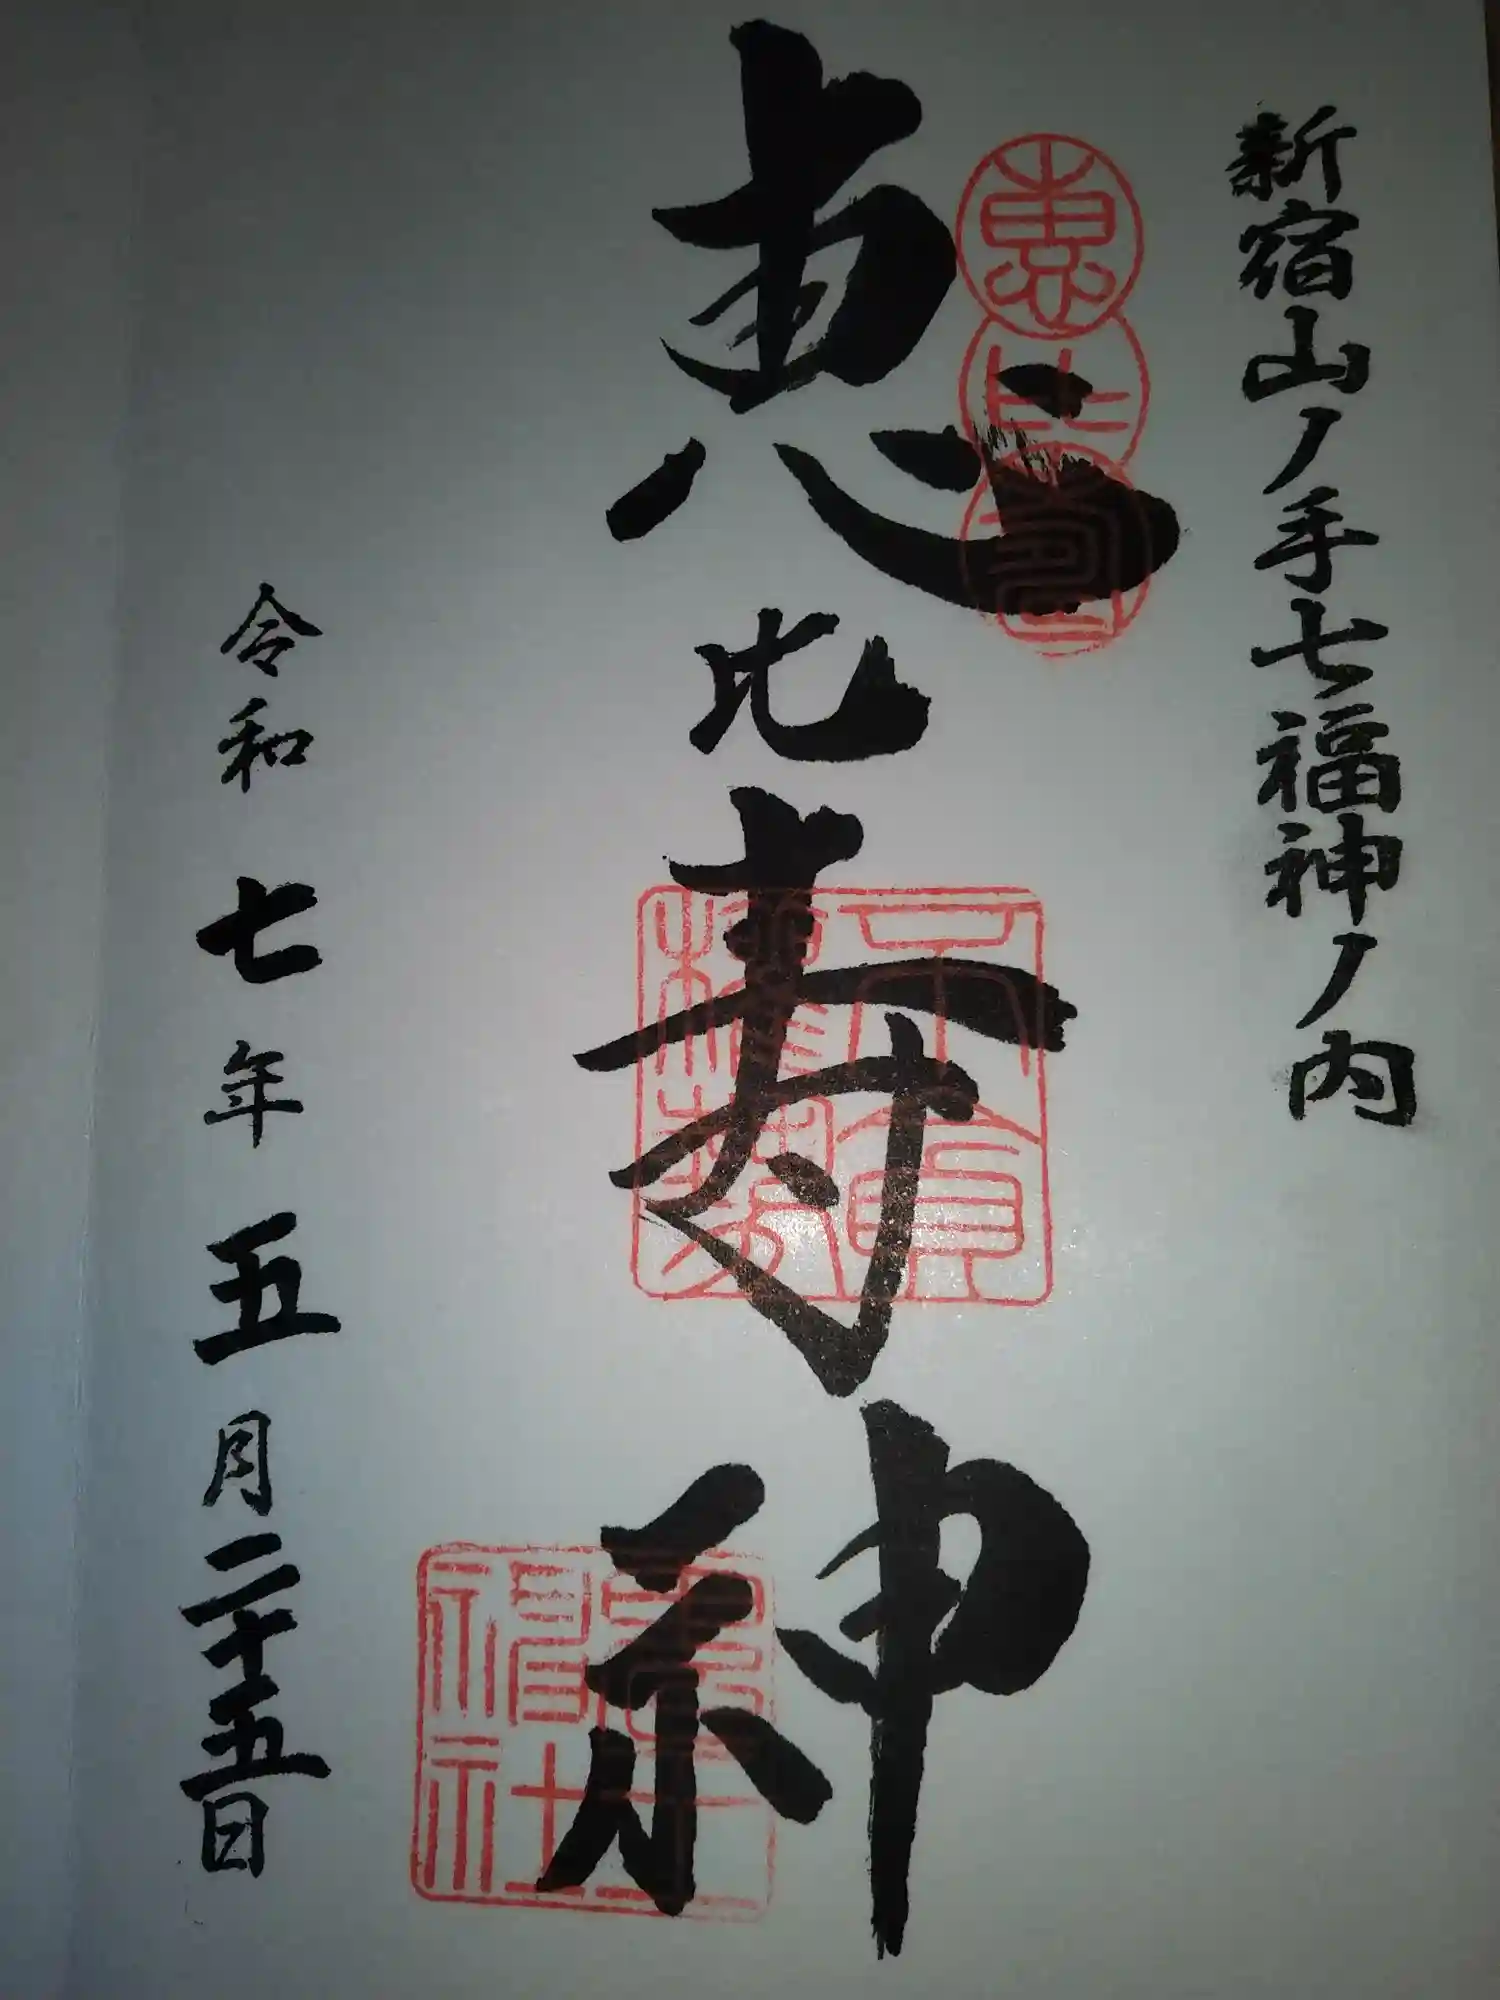 新宿山ノ手七福神ノ内
恵比寿
恵比寿神
稲荷
令和七年五月二十五日